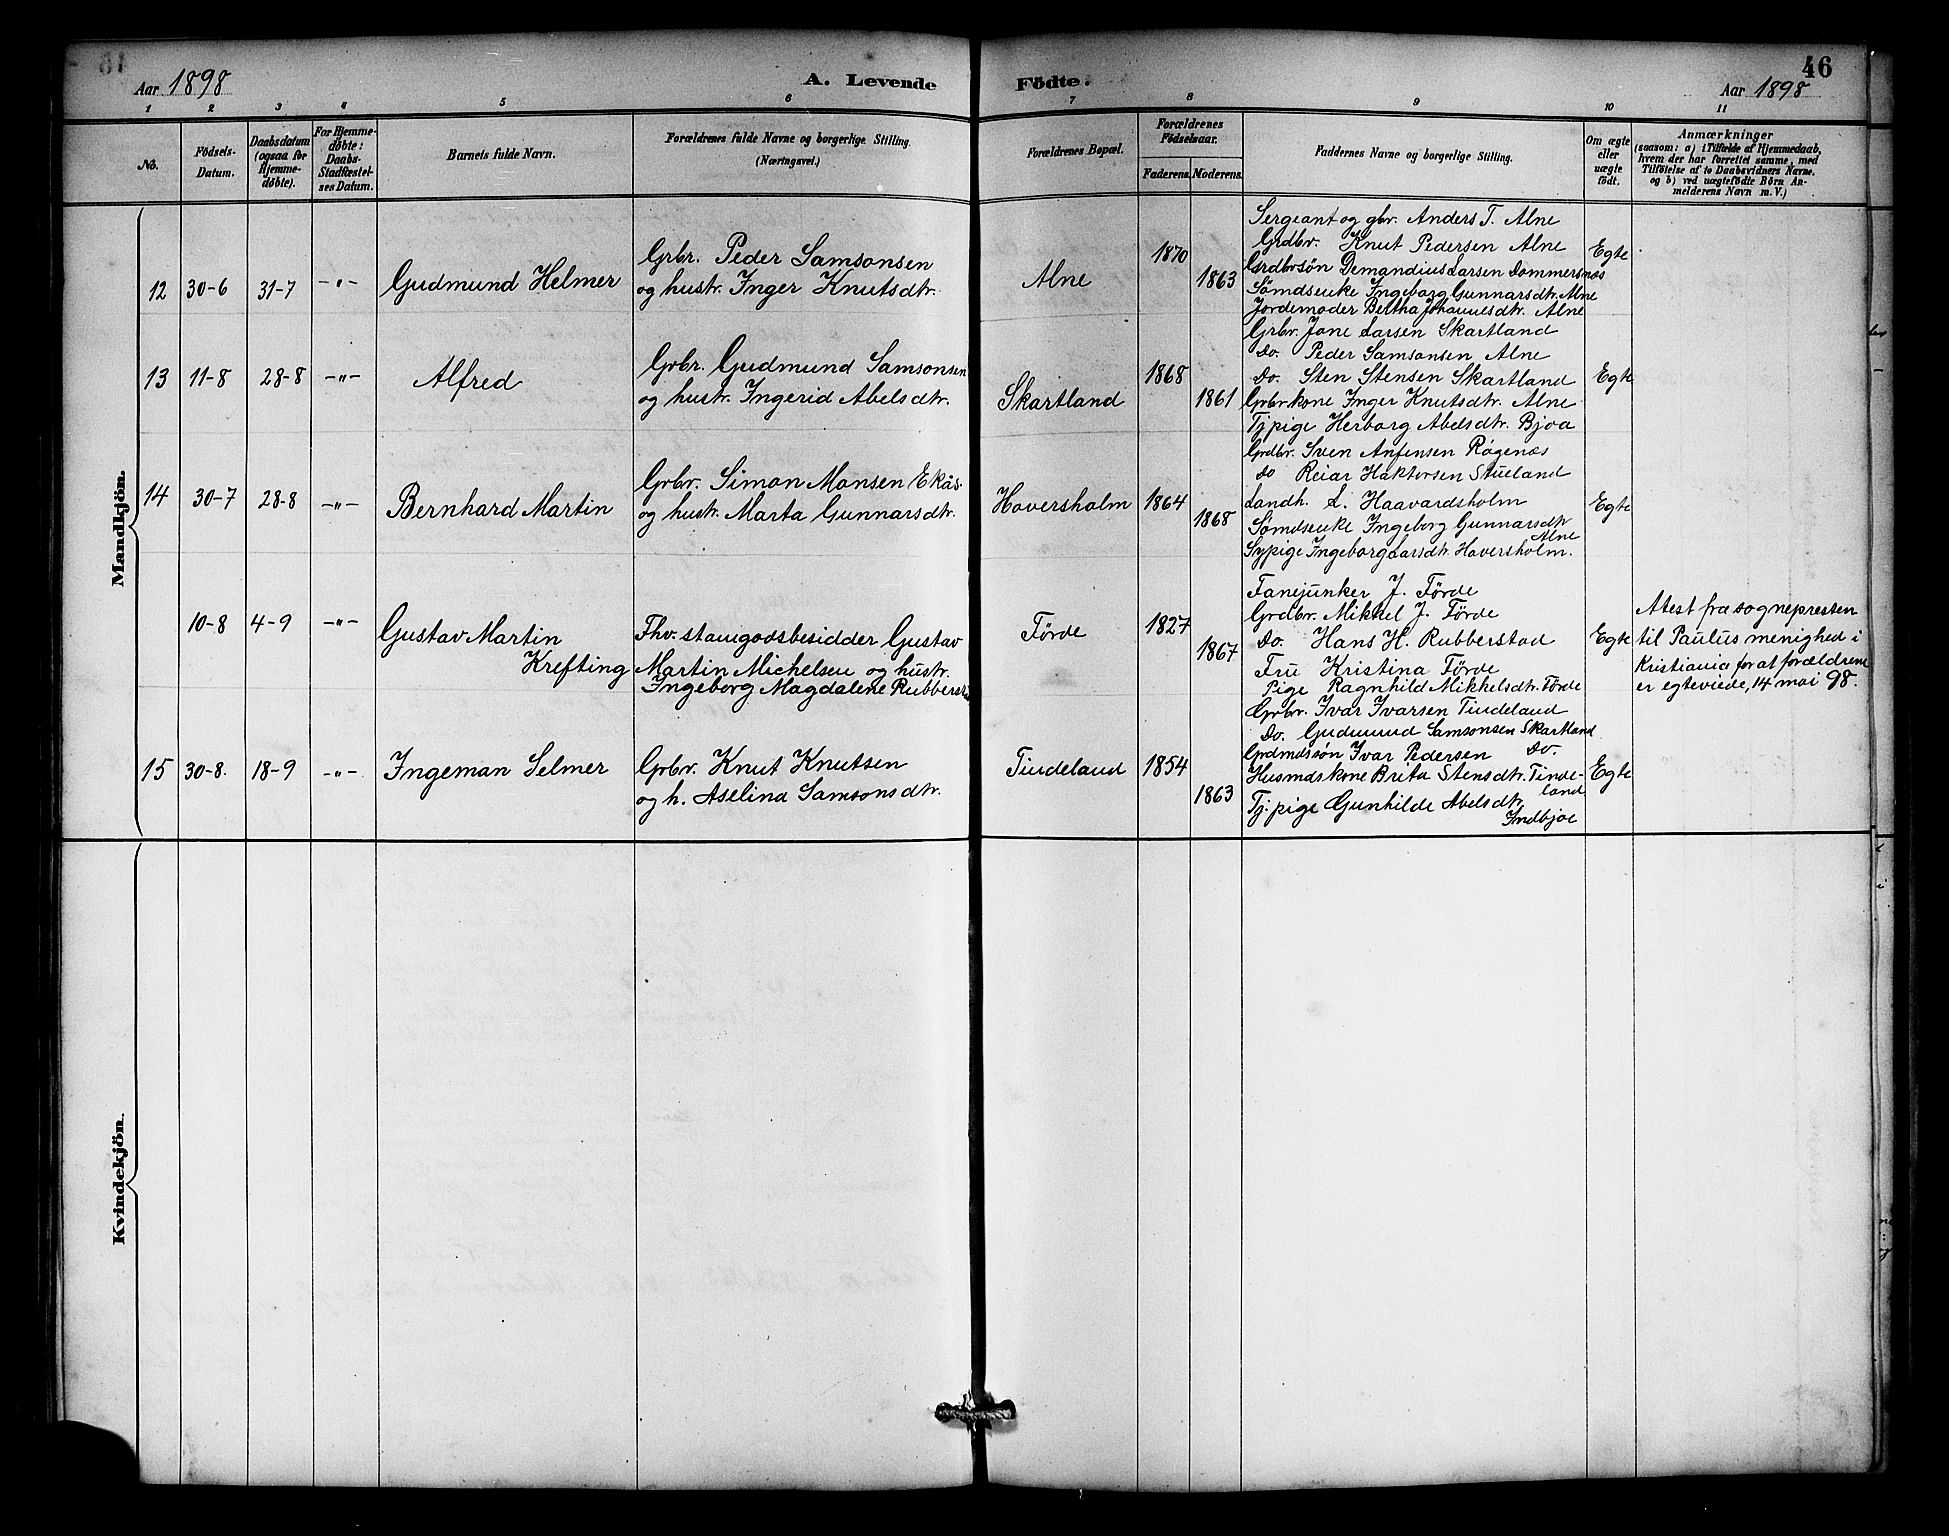 46
Aar 1898
A. Levende Födte.
Aar 1898
1 2 3 4 5 6 7 8 9 10 11
No.
Födsels-
Datum.
Daabsdatum
(ogsaa for
Hjemme-
døbte).
For Hjemme-
døbte:
Daabs-
Stadfæstel-
ses Datum.
Barnets fulde Navn.
Forældrenes fulde Navne og borgerlige Stilling.
(Næringsvei.)
Forældrenes Bopæl.
Forældrenes
Födselsaar.
Faderens.
Moderens.
Faddernes Navne og borgerlige Stilling.
Om ægte
eller
uægte
födt.
Anmærkninger
(saasom: a) i Tilfælde af Hjemmedaab,
hvem der har forrettet samme, med
Tilføielse af to Daabsvidners Navne.
og b) ved uægtefödte Börn An-
melderens Navn m. V.)
Mandkjön.
12 30-6 31-7 -"-
Gudmund Helmer
Grbr. Peder Samsonsen
og hustr. Inger Knutsdtr.
Alne
1870
1863
Sergeant og gbr. Anders T. Alne
Grdbr. Knut Pedersen Alne
Grdbrsøn Demandius Larsen Dommersnæs
Sømdseuke Ingeborg Gunnarsdtr. Alne
Jordemoder Bertha Johannesdtr. Alne
Egte
13 11-8 28-8 -"-
Alfred
Grbr. Gudmund Samsonsen
og hustr. Ingerid Abelsdtr.
Skartland
1868
1861
Grbr. Jone Larsen Skartland
Do. Peder Samsonsen Alne
Do. Sten Stensen Skartland
Grbrkone Inger Knutsdtr. Alne
Tjpige Herborg Abelsdtr. Bjoa
Egte
14 30-7 28-8 -"-
Bernhard Martin
Grbr. Simon Monsen Ekås
og hustr. Marta Gunnarsdtr.
Hoversholm
1864
1868
Grdbr. Sven Anfensen Røgenæs
do Reiar Haktorsen Stueland
Landh. L. Haavardsholm
Sømdseuke Ingeborg Gunnarsdtr
Alne
Sypige Ingeborg Larsdtr. Hoversholm.
Egte
10-8 4-9 -"-
Gustav Martin
Krefting
Fhv. stamgodsbesidder Gustav
Martin Michelsen og hustr.
Ingeborg Magdalene Rubberstad
Förde
1827
1867
Fanejunker J. Förde
Grdbr. Mikkel J. Förde
Do. Hans H. Rubberstad
Fru Kristina Förde
Pige Ragnhild Mikkelsdtr. Förde
Egte
Atest fra sognepresten
til Paulus menighed i
Kristiania for at forældrene
er egteviede, 14 mai 98.
15 30-8. 18-9 -"-
Ingeman Selmer
Grbr. Knut Knutsen
og h. Aselina Samsonsdtr.
Tindeland
1854
1863
Grbr. Ivar Ivarsen Tindeland
Do. Gudmund Samsonsen Skartland
Grdmdssøn Ivar Pedersen Do.
Husmdskone Brita Stensdtr. Tinde-
land
Tj. pige Gunhilde Abelsdtr.
Indbjoe
Egte
Kvindekjön.